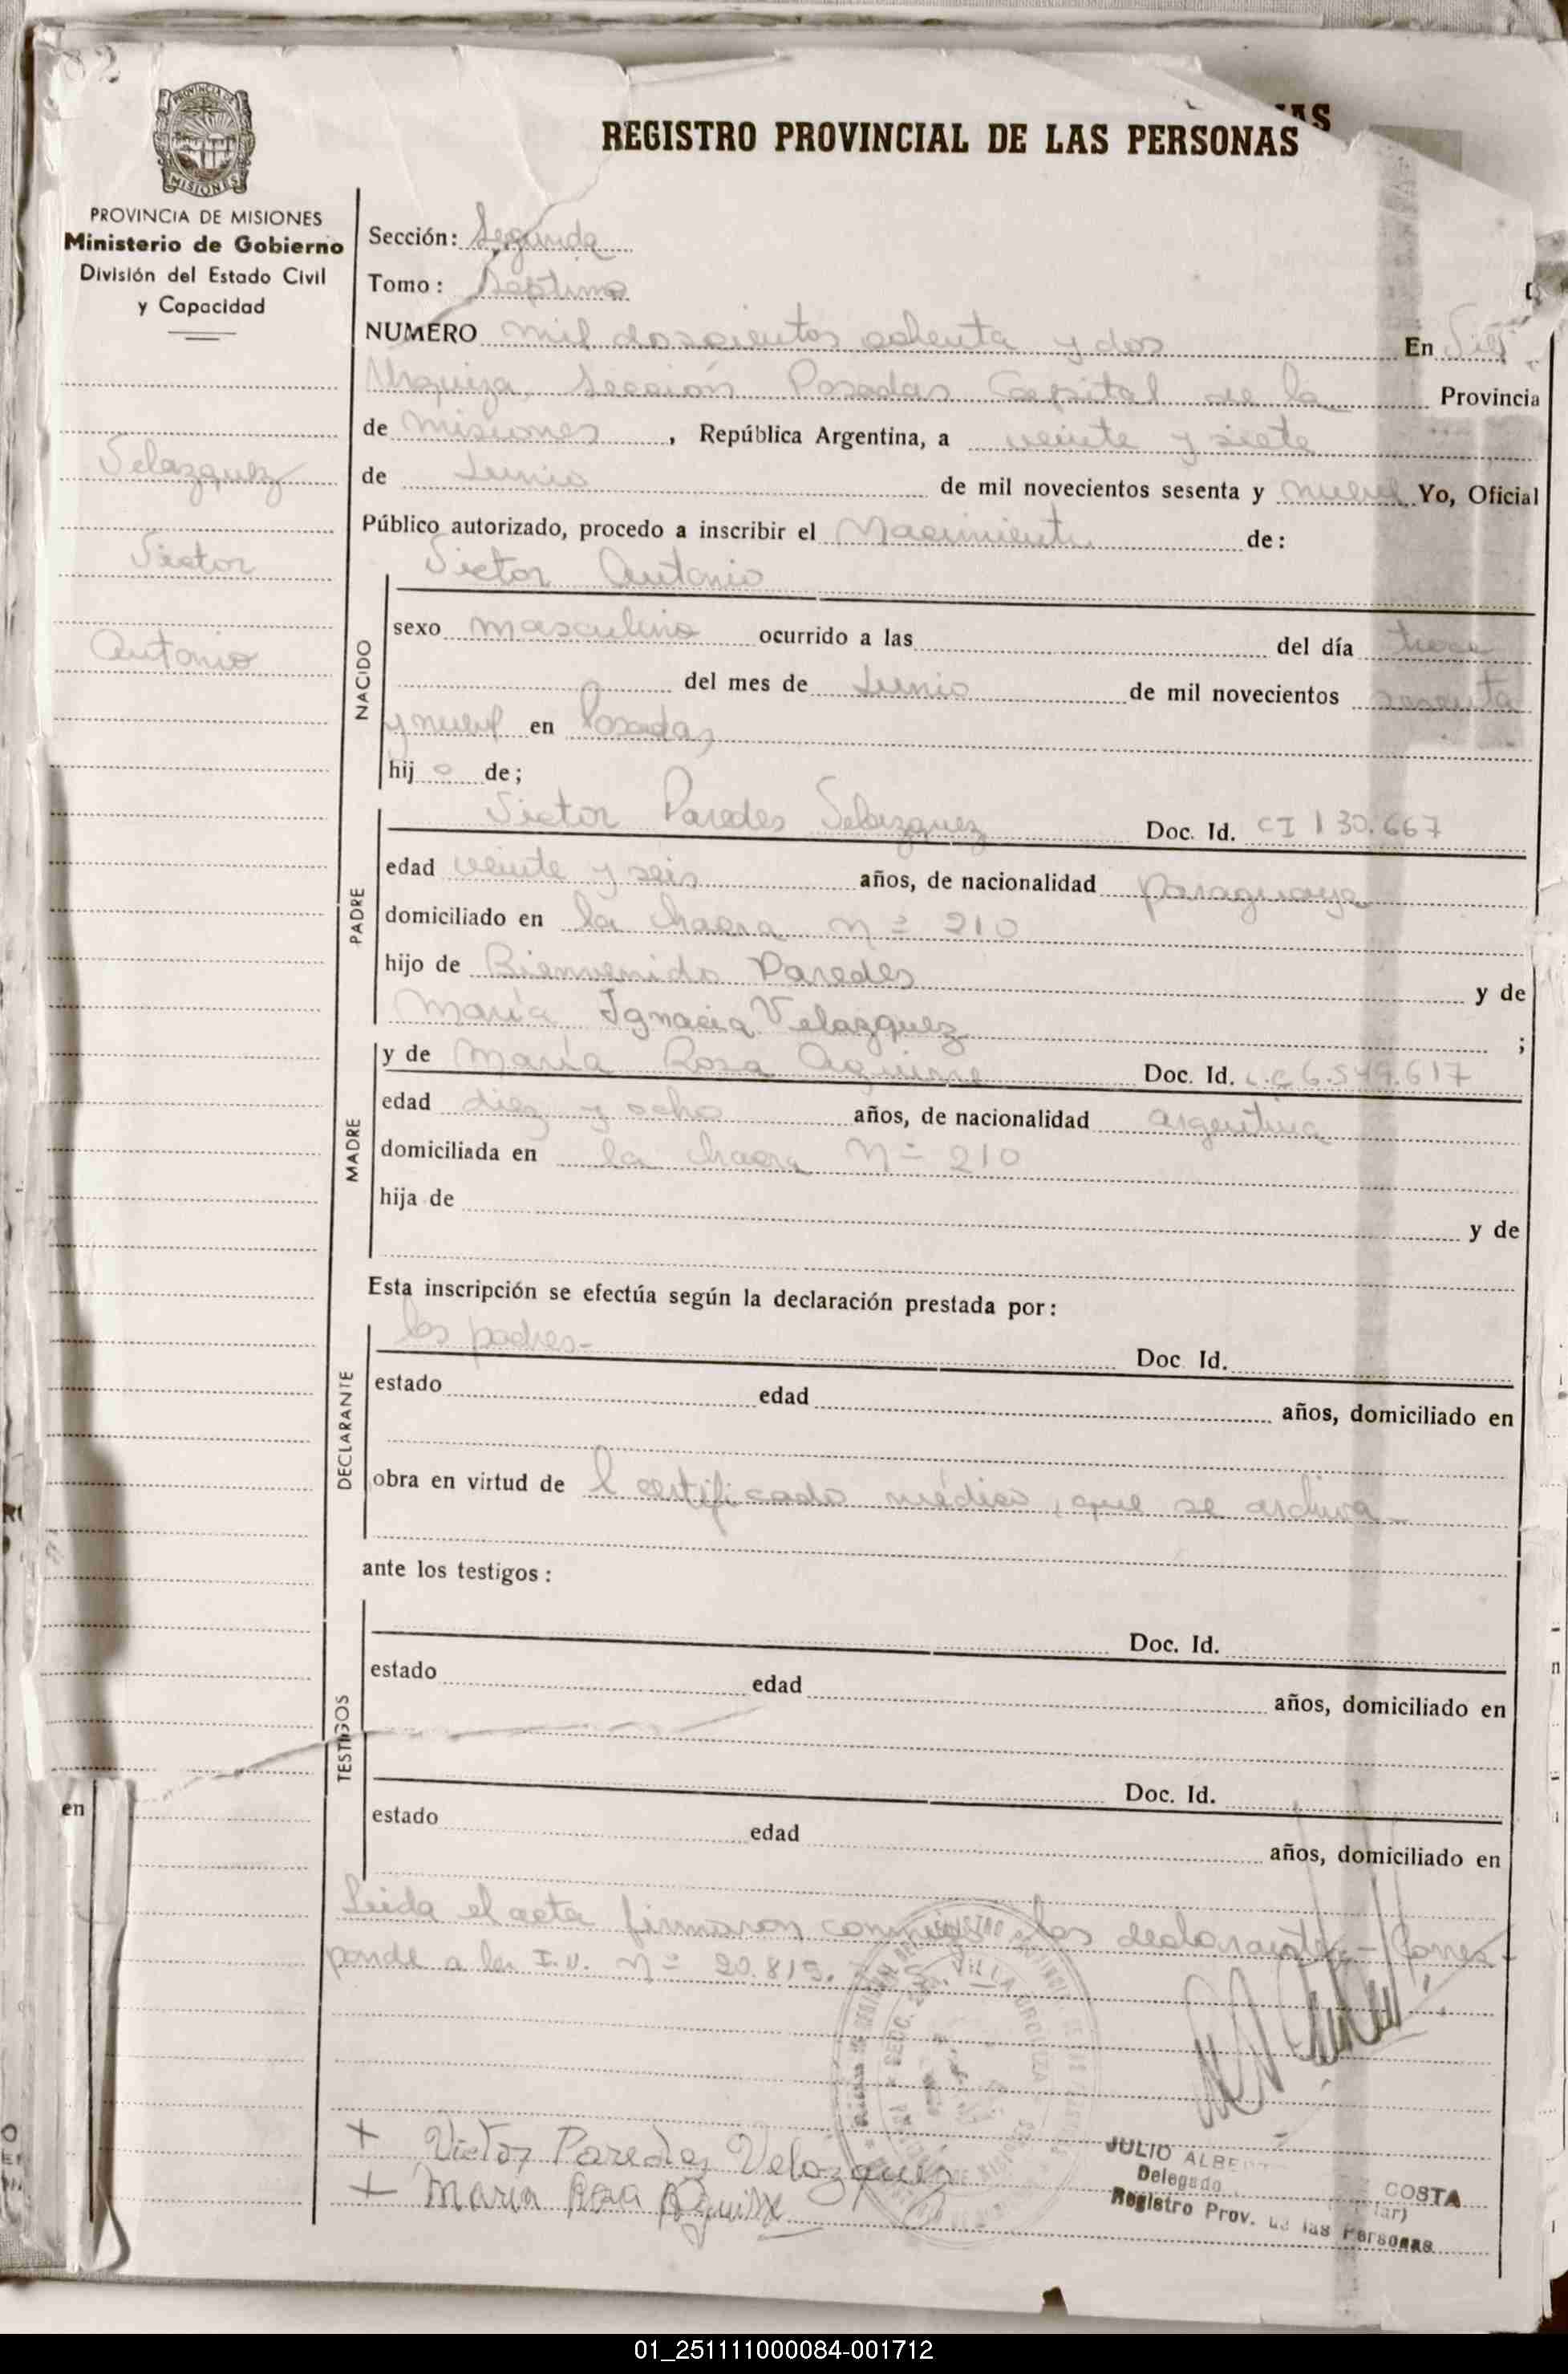 82
REGISTRO PROVINCIAL DE LAS PERSONAS
PROVINCIA DE MISIONES
Ministerio de Gobierno
División del Estado Civil
y Capacidad
Velazquez
Victor
Antonio
Sección: Segunda
Tomo: Septimo
NUMERO mil doscientos ochenta y dos En Villa
Urquiza, Sección Posadas Capital de la Provincia
de Misiones, República Argentina, a veinte y siete
de Junio de mil novecientos sesenta y nueve Yo, Oficial
Público autorizado, procedo a inscribir el Nacimiento de:
NACIDO
Victor Antonio
sexo masculino ocurrido a las del día trece
del mes de Junio de mil novecientos sesenta
y nueve en Posadas
hijo de;
PADRE
Victor Paredes Velazquez Doc. Id. CI 130.667
edad veinte y seis años, de nacionalidad paraguaya
domiciliado en la chacra nº 210
hijo de Bienvenido Paredes y de
María Ignacia Velazquez ;
MADRE
y de María Rosa Aguirre Doc. Id. L.C 6.549.617
edad diez y ocho años, de nacionalidad argentina
domiciliada en la chacra Nº 210
hija de y de
Esta inscripción se efectúa según la declaración prestada por:
DECLARANTE
los padres- Doc. Id.
estado edad años, domiciliado en
obra en virtud de l certificado médico, que se archiva-
ante los testigos:
TESTIGOS
Doc. Id.
estado edad años, domiciliado en
Doc. Id.
estado edad años, domiciliado en
en
Leida el acta firmaron conmigo los declarantes.- Corres-
ponde a la I.U. nº 20.819.
VILLA URQUIZA
+ Victor Paredes Velazquez
+ Maria Rosa Aguirre
JULIO ALBE COSTA
Delegado
Registro Prov. de las Personas
01_251111000084-001712